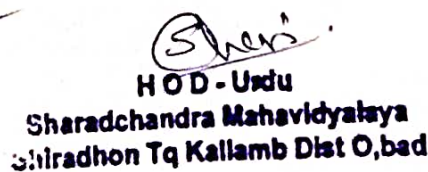 H O D - Urdu
Sharadchandra Mahavidyalaya
Shiradhon Tq Kallamb Dist O,bad